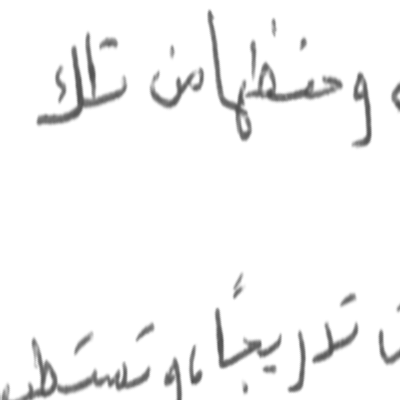 وحفظها من تلك
تدريجيًا، و تستطيع